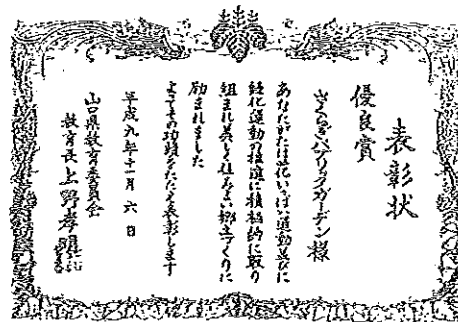 表彰状
優良賞
さくらぎパブリックガーデン様
あなたがたは花いっぱい運動並びに
緑化運動の推進に積極的に取り
組まれ美しく住みよい郷土づくりに
励まれました
よってその功績をたたえ表彰します
平成九年十一月六日
山口県教育委員会
教育長上野孝明